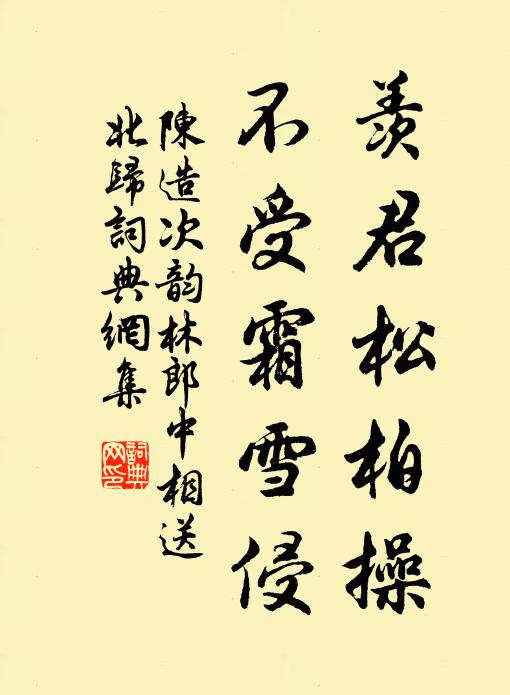 羨君松柏操
不受霜雪侵
陳造次韵林郎中相送
北歸詞典網集
詞典
网印